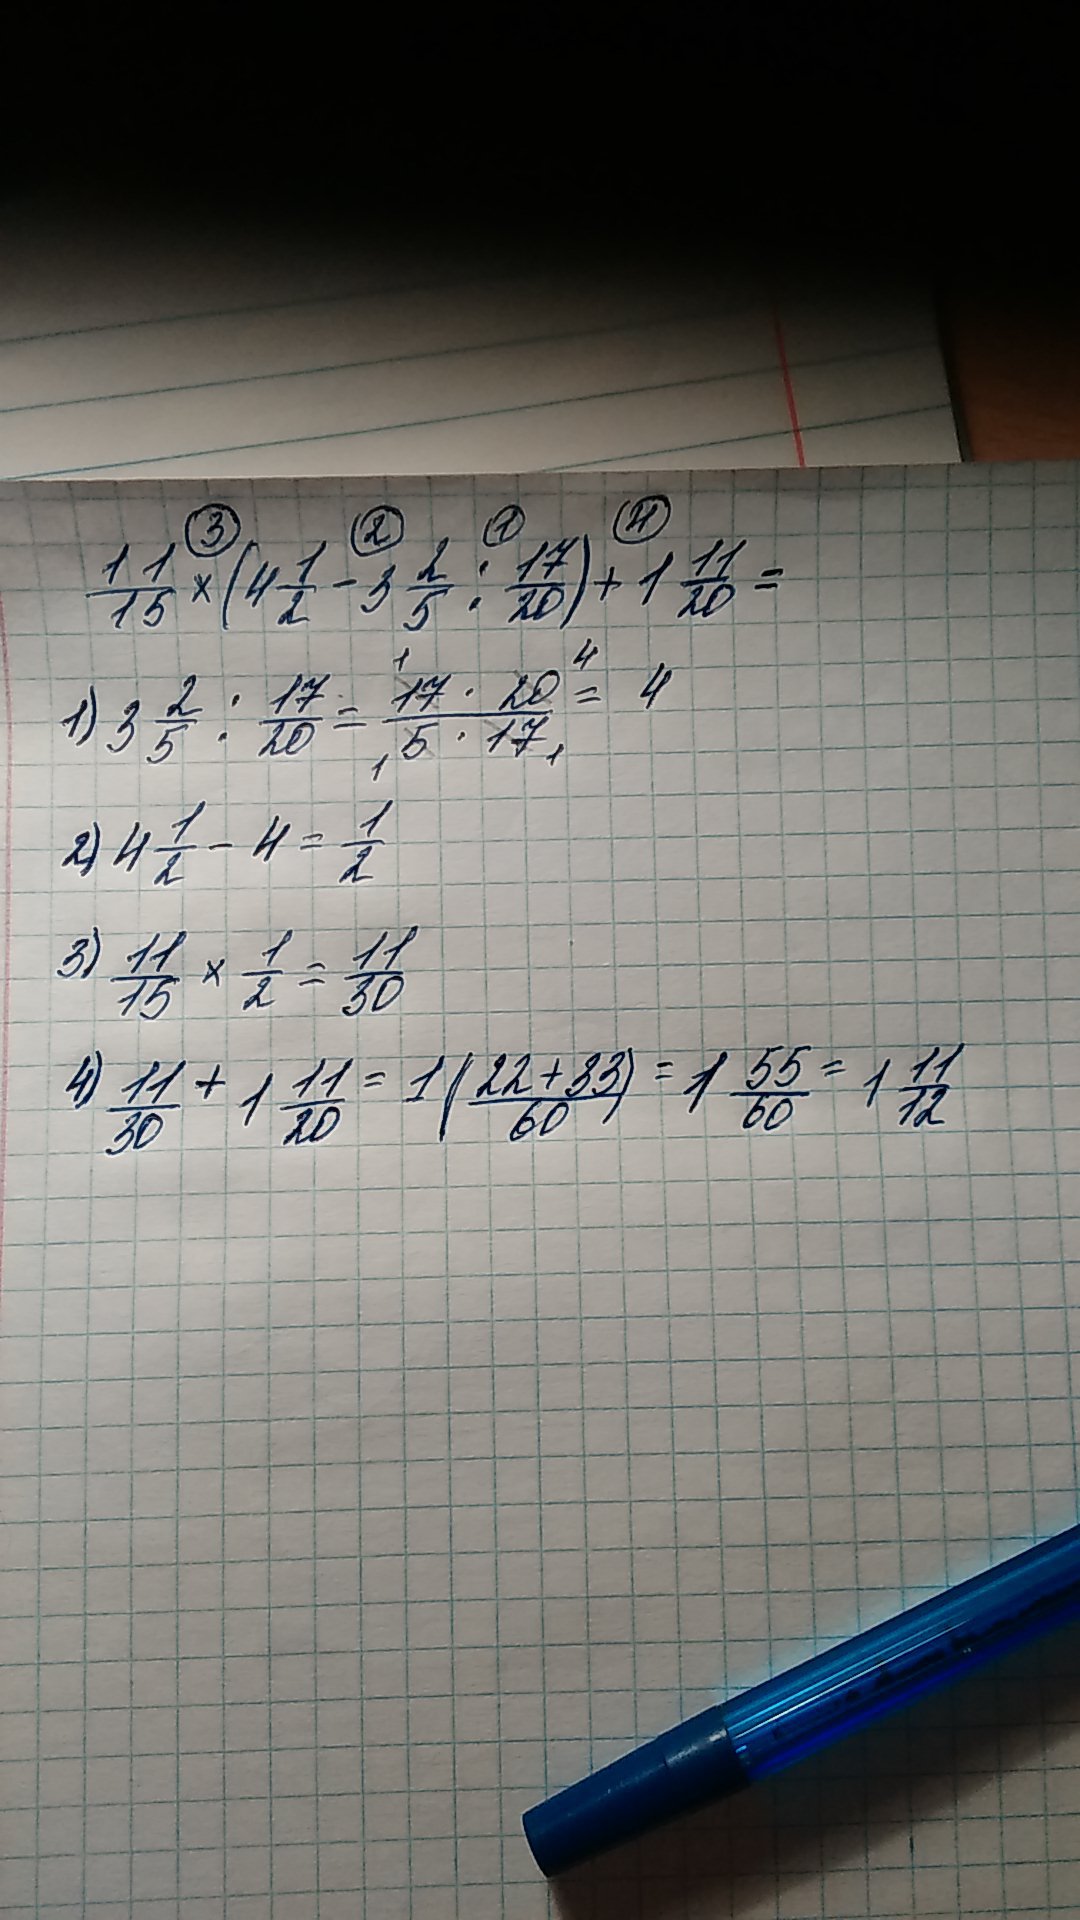 ③ ② ① ④
11/15 × (4 1/2 - 3 2/5 : 17/20) + 1 11/20 =
1) 3 2/5 : 17/20 = 17 · 20 / 5 · 17 = 4
2) 4 1/2 - 4 = 1/2
3) 11/15 × 1/2 = 11/30
4) 11/30 + 1 11/20 = 1 (22+33/60) = 1 55/60 = 1 11/12